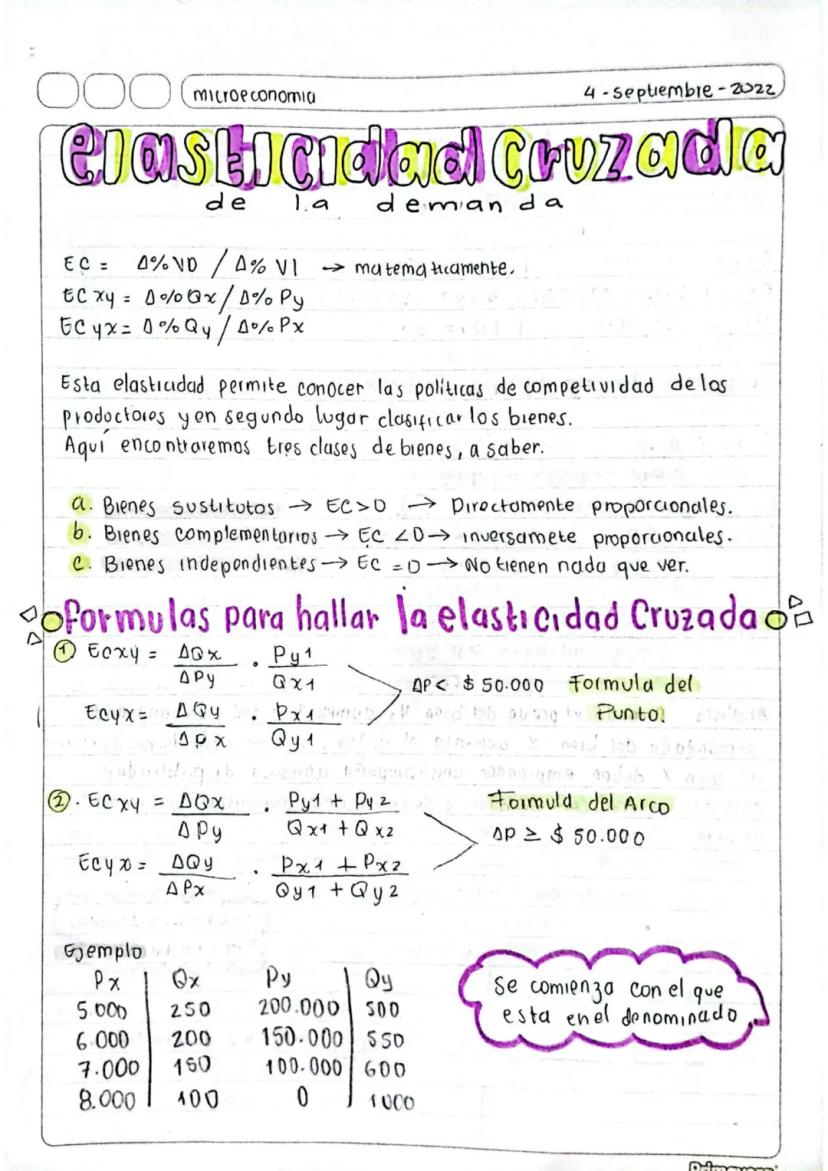 microeconomia 4 - septiembre - 2022
elasticidad Cruzada
de la demanda
EC = Δ% VD / Δ% VI → matematicamente.
EC xy = Δ%Qx / Δ% Py
EC yx = Δ%Qy / Δ% Px
Esta elasticidad permite conocer las políticas de competividad de los
productores y en segundo lugar clasificar los bienes.
Aquí encontraremos tres clases de bienes, a saber.
a. Bienes sustitutos → EC>0 → Directamente proporcionales.
b. Bienes complementarios → EC <0 → inversamete proporcionales.
c. Bienes independientes → EC =0 → No tienen nada que ver.
formulas para hallar la elasticidad Cruzada
① Ecxy = ΔQx / ΔPy . Py1 / Qx1
ΔP< $ 50.000 Formula del
Punto.
Ecyx = ΔQy / ΔPx . Px1 / Qy1
②. ECxy = ΔQx / ΔPy . Py1 + Py2 / Qx1 + Qx2
Formula del Arco
ΔP ≥ $ 50.000
Ecyx = ΔQy / ΔPx . Px1 + Px2 / Qy1 + Qy2
Ejemplo
Px Qx Py Qy
5.000 250 200.000 500
6.000 200 150.000 550
7.000 150 100.000 600
8.000 100 0 1000
Se comienza con el que
esta en el denominado
Primavera